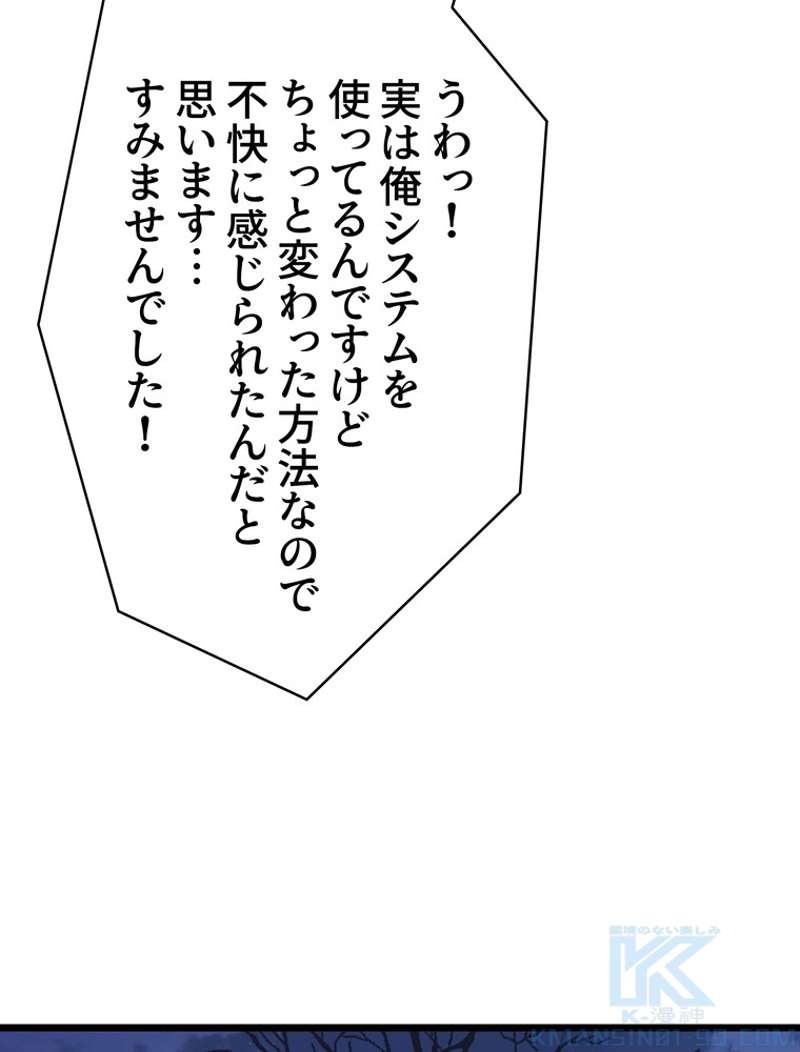 うわっ！
実は俺システムを
使ってるんですけど
ちょっと変わった方法なので
不快に感じられたんだと
思います…
すみませんでした！
限境のない楽しみ
K-漫神
KMANSIN01-90.COM